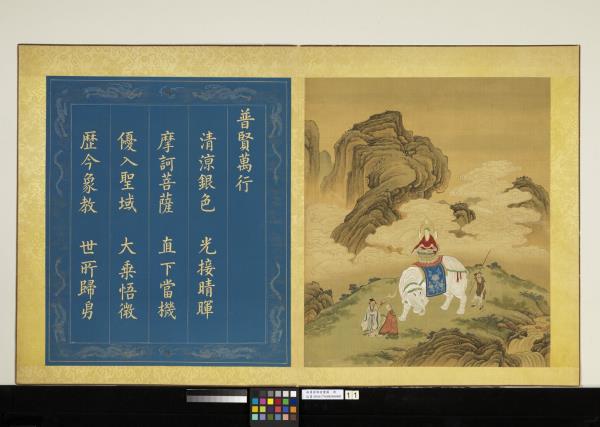 普賢萬行
清涼銀色 光接晴暉
摩訶菩薩 直下當機
優入聖域 大乘悟微
歷今象教 世所歸
11